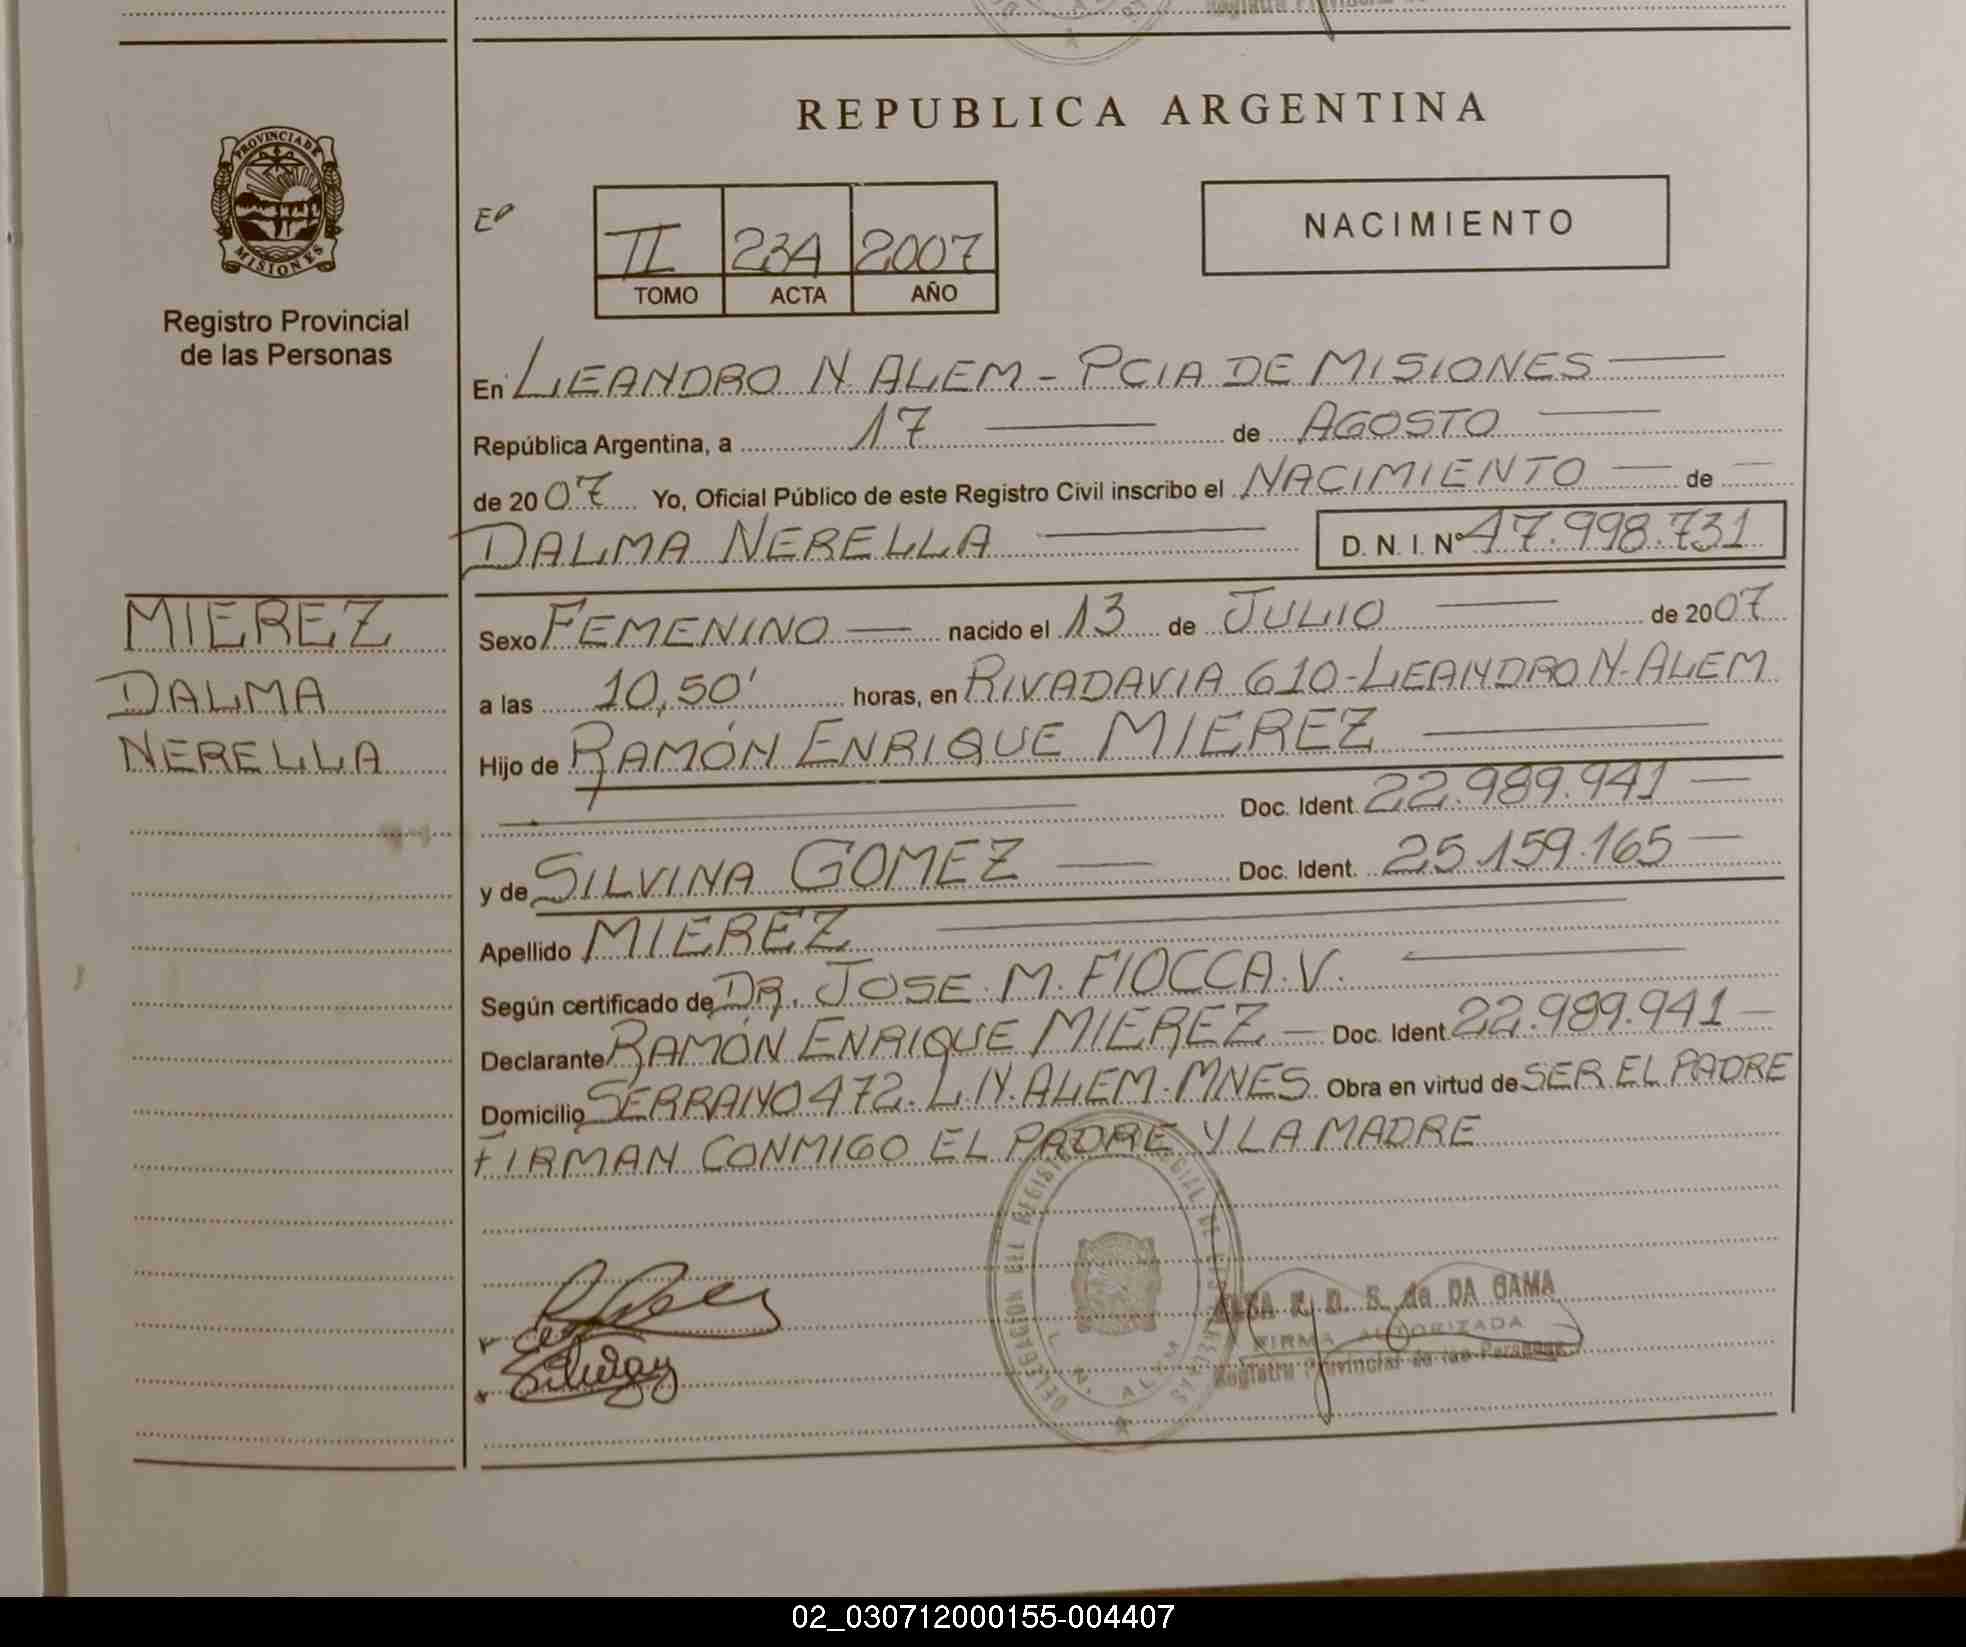 REPUBLICA ARGENTINA
PROVINCIA DE
MISIONES
Registro Provincial
de las Personas
EP
II 234 2007
TOMO ACTA AÑO
NACIMIENTO
En LEANDRO N. ALEM - PCIA DE MISIONES
República Argentina, a 17 de AGOSTO
de 2007 Yo, Oficial Público de este Registro Civil inscribo el NACIMIENTO de
DALMA NERELLA D. N. I. Nº 47.998.731
MIEREZ
DALMA
NERELLA
Sexo FEMENINO nacido el 13 de JULIO de 2007
a las 10,50' horas, en RIVADAVIA 610-LEANDRO N. ALEM
Hijo de RAMÓN ENRIQUE MIEREZ
Doc. Ident. 22.989.941
y de SILVINA GOMEZ Doc. Ident. 25.159.165
Apellido MIEREZ
Según certificado de DR. JOSE. M. FIOCCA. V.
Declarante RAMÓN ENRIQUE MIEREZ Doc. Ident. 22.989.941
Domicilio SERRANO 472. L.N. ALEM-MNES. Obra en virtud de SER EL PADRE
FIRMAN CONMIGO EL PADRE Y LA MADRE
DELEGACION DEL REGISTRO PROVINCIAL DE LAS PERSONAS
L. N. ALEM
D. S. de DA GAMA
FIRMA AUTORIZADA
Registro Provincial de las Personas
02_030712000155-004407